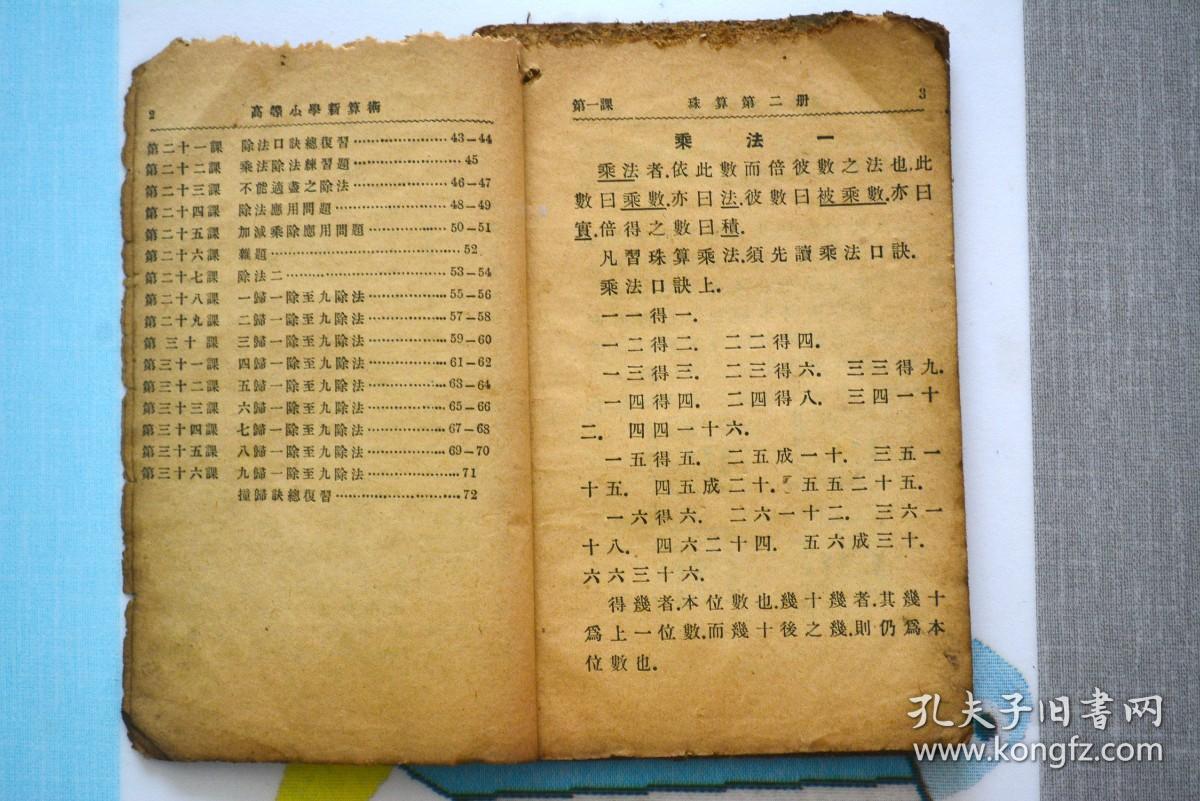 2 高等小學新算術
第二十一課 除法口訣總復習 43-44
第二十二課 乘法除法練習題 45
第二十三課 不能適盡之除法 46-47
第二十四課 除法應用問題 48-49
第二十五課 加減乘除應用問題 50-51
第二十六課 雜題 52
第二十七課 除法二 53-54
第二十八課 一歸一除至九除法 55-56
第二十九課 二歸一除至九除法 57-58
第三十課 三歸一除至九除法 59-60
第三十一課 四歸一除至九除法 61-62
第三十二課 五歸一除至九除法 63-64
第三十三課 六歸一除至九除法 65-66
第三十四課 七歸一除至九除法 67-68
第三十五課 八歸一除至九除法 69-70
第三十六課 九歸一除至九除法 71
撞歸訣總復習 72
第一課 珠算第二册 3
乘法一
乘法者.依此數而倍彼數之法也.此
數曰乘數.亦曰法.彼數曰被乘數.亦曰
實.倍得之數曰積.
凡習珠算乘法.須先讀乘法口訣.
乘法口訣上.
一一得一.
一二得二. 二二得四.
一三得三. 二三得六. 三三得九.
一四得四. 二四得八. 三四一十
二. 四四一十六.
一五得五. 二五成一十. 三五一
十五. 四五成二十. 五五二十五.
一六得六. 二六一十二. 三六一
十八. 四六二十四. 五六成三十.
六六三十六.
得幾者.本位數也.幾十幾者.其幾十
爲上一位數.而幾十後之幾.則仍爲本
位數也.
孔夫子旧书网
www.kongfz.com